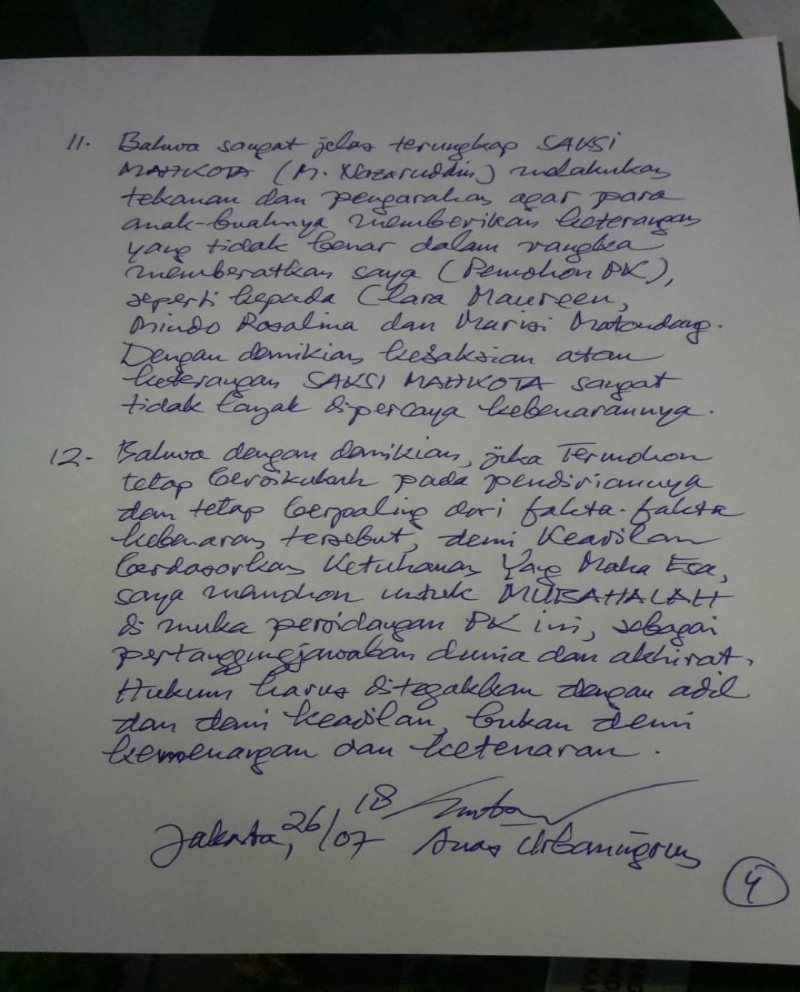 11. Bahwa sangat jelas terungkap SAKSI
MAHKOTA (M. Nazaruddin) melakukan
tekanan dan pengarahan agar para
anak-buahnya memberikan keterangan
yang tidak benar dalam rangka
memberatkan saya (Pemohon PK),
seperti kepada Clara Maureen,
Mindo Rosalina dan Marisi Matondang.
Dengan demikian kesaksian atau
keterangan SAKSI MAHKOTA sangat
tidak layak dipercaya kebenarannya.
12. Bahwa dengan demikian, jika Termohon
tetap bersikukuh pada pendiriannya
dan tetap berpaling dari fakta-fakta
kebenaran tersebut, demi Keadilan
berdasarkan Ketuhanan Yang Maha Esa,
saya memohon untuk MUBAHALAH
di muka persidangan PK ini, sebagai
pertanggungjawaban dunia dan akhirat.
Hukum harus ditegakkan dengan adil
dan demi keadilan, bukan demi
kemenangan dan ketenaran.
Jakarta, 26/07 18
Anas Urbaningrum
4